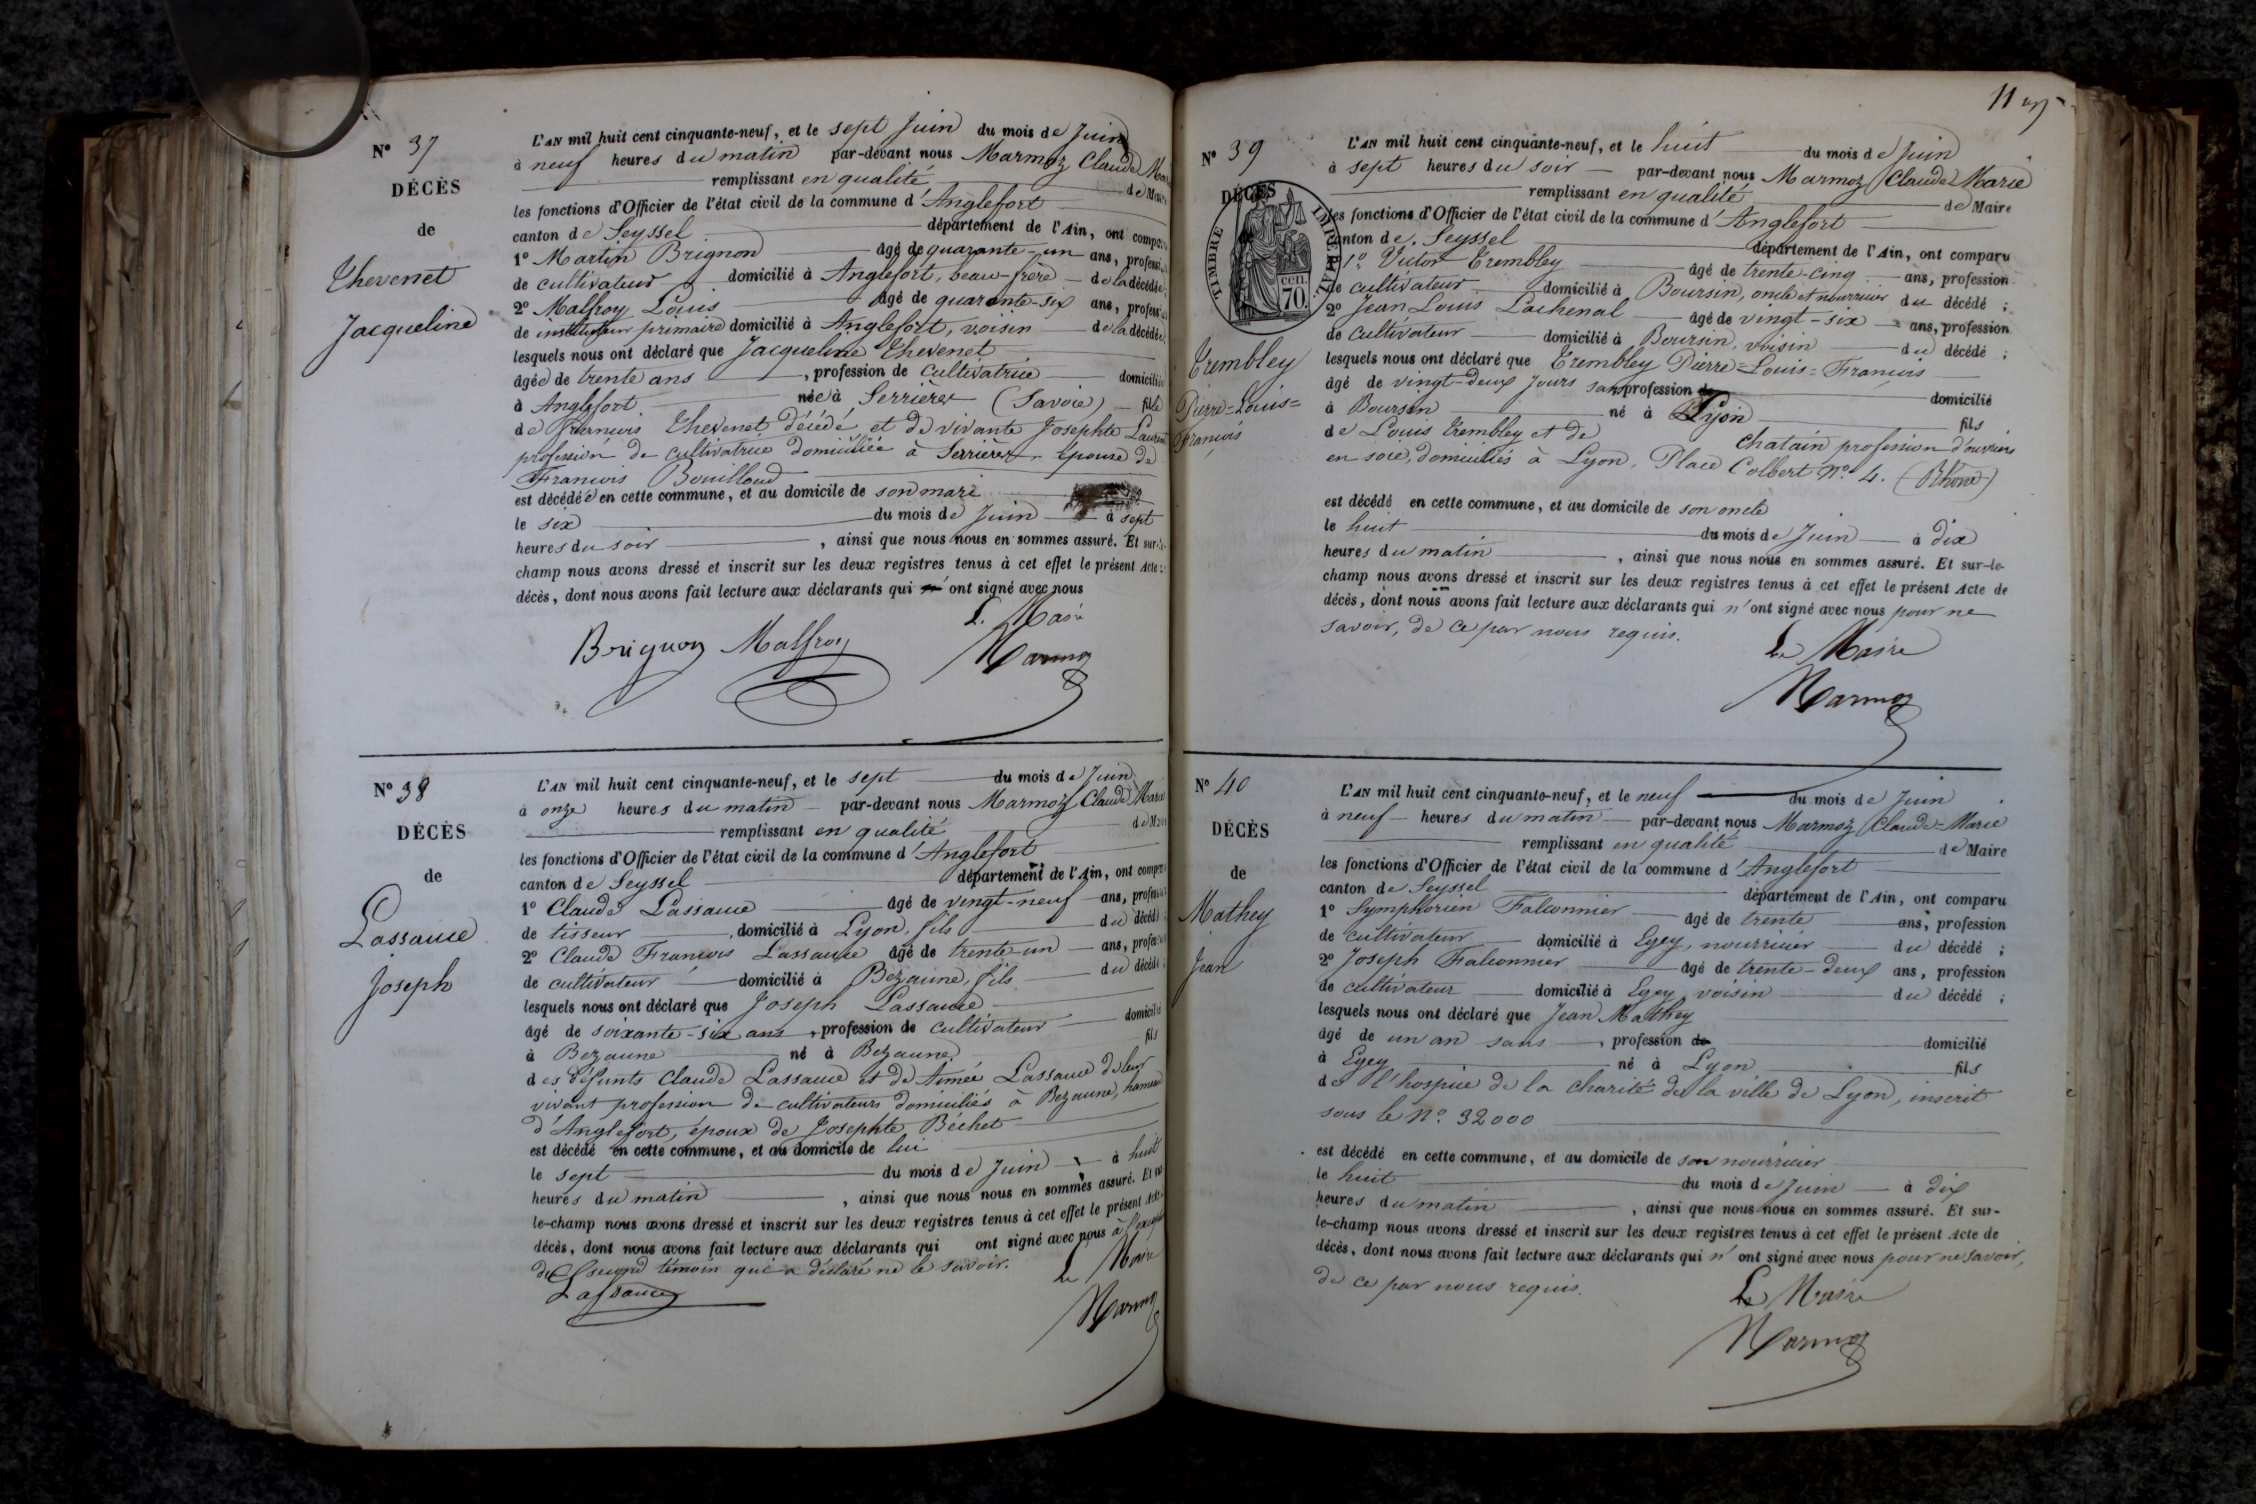 N° 37
DÉCÈS
de
Thevenet
Jacqueline
L'AN mil huit cent cinquante-neuf, et le sept Juin du mois de Juin
à neuf heures du matin par-devant nous Marmoz Claude
remplissant en qualité de Maire
les fonctions d'Officier de l'état civil de la commune d'Anglefort
canton de Seyssel département de l'Ain, ont
1° Martin Brignon âgé de quarante-un ans,
de cultivateur domicilié à Anglefort, beau-frère de la décédée
2° Malfroy Louis âgé de quarante-six ans,
de instituteur primaire domicilié à Anglefort, voisin de la décédée
lesquels nous ont déclaré que Jacqueline Thevenet
âgée de trente ans, profession de cultivatrice
à Anglefort née à Serrières (Savoie) fille
de François Thevenet décédé et de vivante Josephte
profession de cultivatrice domiciliée à Serrières épouse de
François Bouilloud
est décédée en cette commune, et au domicile de son mari
le six du mois de Juin à sept
heures du soir, ainsi que nous nous en sommes assuré. Et sur-
champ nous avons dressé et inscrit sur les deux registres tenus à cet effet le présent Acte
décès, dont nous avons fait lecture aux déclarants qui ont signé avec nous
Brignon Malfroy Marmoz
N° 38
DÉCÈS
de
Lassauce
Joseph
L'AN mil huit cent cinquante-neuf, et le sept du mois de Juin
à onze heures du matin par-devant nous Marmoz Claude Marie
remplissant en qualité
les fonctions d'Officier de l'état civil de la commune d'Anglefort
canton de Seyssel département de l'Ain, ont
1° Claude Lassauce âgé de vingt-neuf ans,
de tisseur domicilié à Lyon, fils du décédé
2° Claude François Lassauce âgé de trente-un ans,
de cultivateur domicilié à Bezaune, fils du décédé
lesquels nous ont déclaré que Joseph Lassauce
âgé de soixante-six ans, profession de cultivateur domicilié
à Bezaune né à Bezaune fils
des défunts Claude Lassauce et de Aimée Lassauce de leur
vivant profession de cultivateurs domiciliés à Bezaune, hameau
d'Anglefort, époux de Josephte Béchet
est décédé en cette commune, et au domicile de lui
le sept du mois de Juin à huit
heures du matin, ainsi que nous nous en sommes assuré. Et sur
le-champ nous avons dressé et inscrit sur les deux registres tenus à cet effet le présent Acte
décès, dont nous avons fait lecture aux déclarants qui ont signé avec nous à
du second témoin qui a déclaré ne le savoir.
Le Maire
Lassauce Marmoz
11
N° 39
DÉCÈS
TIMBRE IMPÉRIAL
70.
Trembley
Pierre=Louis=
François
L'AN mil huit cent cinquante-neuf, et le huit du mois de Juin
à sept heures du soir par-devant nous Marmoz Claude Marie
remplissant en qualité de Maire
les fonctions d'Officier de l'état civil de la commune d'Anglefort
canton de Seyssel département de l'Ain, ont comparu
1° Victor Trembley âgé de trente-cinq ans, profession
de cultivateur domicilié à Boursin, oncle et nourricier du décédé ;
2° Jean Louis Lachenal âgé de vingt-six ans, profession
de cultivateur domicilié à Boursin, voisin du décédé ;
lesquels nous ont déclaré que Trembley Pierre=Louis=François
âgé de vingt-deux jours sans profession de domicilié
à Boursin né à Lyon fils
de Louis Trembley et de Chatain profession d'ouvriers
en soie, domiciliés à Lyon, Place Colbert N° 4. (Rhône)
est décédé en cette commune, et au domicile de son oncle
le huit du mois de Juin à dix
heures du matin, ainsi que nous nous en sommes assuré. Et sur-le-
champ nous avons dressé et inscrit sur les deux registres tenus à cet effet le présent Acte de
décès, dont nous avons fait lecture aux déclarants qui n'ont signé avec nous pour ne
savoir, de ce par nous requis.
Le Maire
Marmoz
N° 40
DÉCÈS
de
Mathey
Jean
L'AN mil huit cent cinquante-neuf, et le neuf du mois de Juin
à neuf heures du matin par-devant nous Marmoz Claude=Marie
remplissant en qualité de Maire
les fonctions d'Officier de l'état civil de la commune d'Anglefort
canton de Seyssel département de l'Ain, ont comparu
1° Symphorien Falconnier âgé de trente ans, profession
de cultivateur domicilié à Egey, nourricier du décédé ;
2° Joseph Falconnier âgé de trente-deux ans, profession
de cultivateur domicilié à Egey voisin du décédé ;
lesquels nous ont déclaré que Jean Mathey
âgé de un an sans, profession de domicilié
à Egey né à Lyon fils
de l'hospice de la charité de la ville de Lyon, inscrit
sous le N° 32000
est décédé en cette commune, et au domicile de son nourricier
le huit du mois de Juin à dix
heures du matin, ainsi que nous nous en sommes assuré. Et sur-
le-champ nous avons dressé et inscrit sur les deux registres tenus à cet effet le présent Acte de
décès, dont nous avons fait lecture aux déclarants qui n'ont signé avec nous pour ne savoir,
de ce par nous requis.
Le Maire
Marmoz